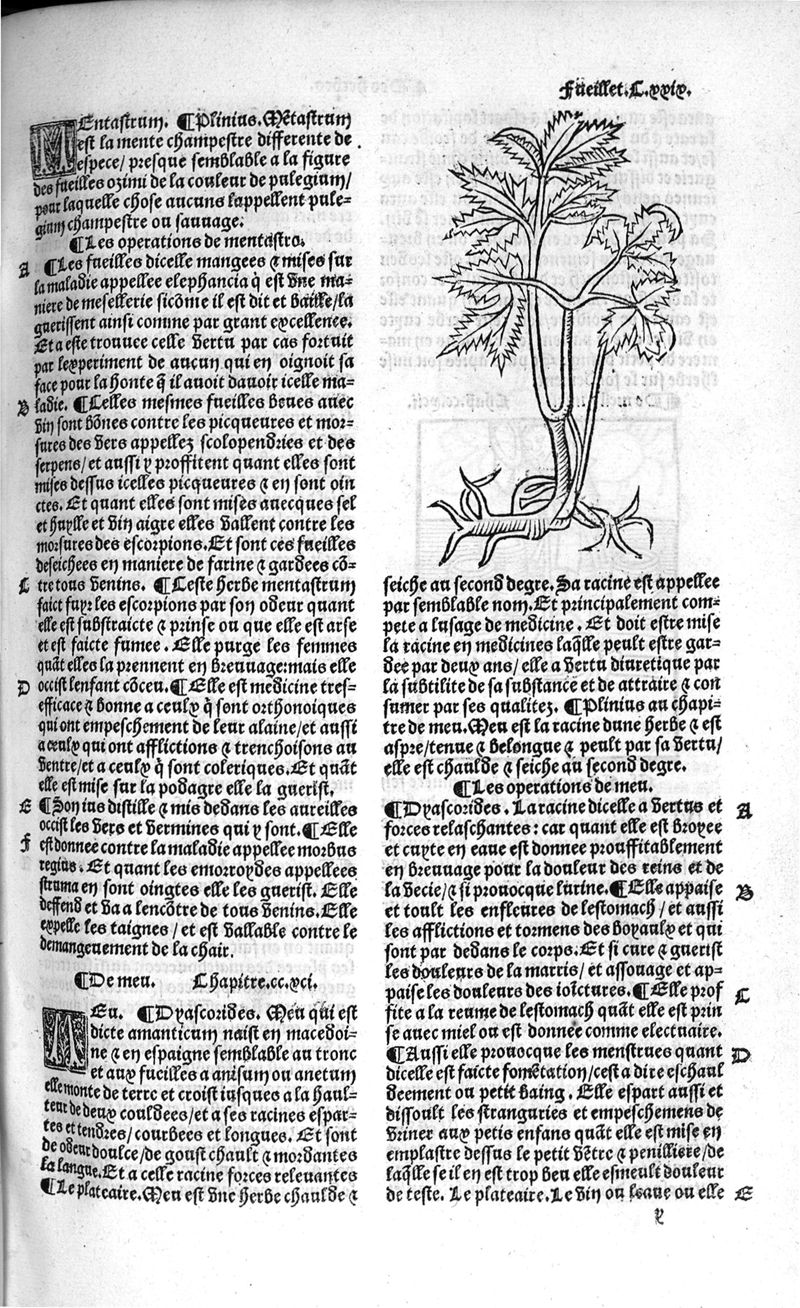 Fueillet.C.xxix.
MEntastrum. ¶Plinius. Mētastrum
est la mente champestre differente de
espece/ presque semblable a la figure
des fueilles ozimi de la couleur de pulegium/
pour laquelle chose aucuns lappellent pule-
gium champestre ou sauuage.
¶Les operations de mentastro.
A ¶Les fueilles dicelle mangees ⁊ mises sur
la maladie appellee elephancia q̄ est vne ma-
niere de mesellerie sicōme il est dit et baille/la
guerissent ainsi comme par grant excellence.
Et a este trouuee celle vertu par cas fortuit
par lexperiment de aucun qui en oignoit sa
face pour la honte q̄ il auoit dauoir icelle ma-
B ladie. ¶Celles mesmes fueilles beues auec
vin sont bōnes contre les picqueures et mor-
sures des vers appellez scolopendries et des
serpens/ et aussi y proffitent quant elles sont
mises dessus icelles picqueures ⁊ en sont oin
ctes. Et quant elles sont mises auecques sel
et huylle et vin aigre elles vallent contre les
morsures des escorpions. Et sont ces fueilles
deseichees en maniere de farine ⁊ gardees cō-
C tre tous venins. ¶Ceste herbe mentastrum
faict fuyr les escorpions par son odeur quant
elle est substraicte ⁊ prinse ou que elle est arse
et est faicte fumee. Elle purge les femmes
quāt elles la prennent en breuuage: mais elle
D occist lenfant cōceu. ¶Elle est medicine tres-
efficace ⁊ bonne a ceulx q̄ sont orthonoiques
qui ont empeschement de leur alaine/et aussi
a ceulx qui ont afflictions ⁊ trenchoisons au
ventre/et a ceulx q̄ sont coleriques. Et quāt
elle est mise sur la podagre elle la guerist.
E ¶Son ius distille ⁊ mis dedans les aureilles
occist les vers et vermines qui y sont. ¶Elle
F est donnee contre la maladie appellee morbus
regius. Et quant les emorroydes appellees
struma en sont oingtes elle les guerist. Elle
deffend et va a lencōtre de tous venins. Elle
expelle les taignes/ et est vallable contre le
demangeuement de la chair.
¶De meu. Chapitre.cc.xci.
MEu. ¶Dyascorides. Meu qui est
dicte amanticum naist en macedoi-
ne ⁊ en espaigne semblable au tronc
et aux fueilles a anisum ou anetum
elle monte de terre et croist iusques a la haul-
teur de deux couldees/et a ses racines espar-
tes et tendres/ courbees et longues. Et sont
de odeur doulce/de goust chault ⁊ mordantes
la langue. Et a celle racine forces releuantes
¶Le plateaire. Meu est vne herbe chaulde ⁊
seiche au second degre. Sa racine est appellee
par semblable nom. Et principalement com-
pete a lusage de medicine. Et doit estre mise
la racine en medicines laq̄lle peult estre gar-
dee par deux ans/ elle a vertu diuretique par
la subtilite de sa substance et de attraire ⁊ con
sumer par ses qualitez. ¶Plinius au chapi-
tre de meu. Meu est la racine dune herbe ⁊ est
aspre/tenue ⁊ belongue ⁊ peult par sa vertu/
elle est chaulde ⁊ seiche au second degre.
¶Les operations de meu.
¶Dyascorides. La racine dicelle a vertus et A
forces relaschantes: car quant elle est broyee
et cuyte en eaue est donnee prouffitablement
en breuuage pour la douleur des reins et de
la vecie/⁊ si prouocque lurine. ¶Elle appaise B
et toult les enfleures de lestomach/ et aussi
les afflictions et tormens des boyaulx et qui
sont par dedans le corps. Et si cure ⁊ guerist
les douleurs de la marris/ et assouage et ap-
paise les douleurs des ioīctures. ¶Elle prof C
fite a la reume de lestomach quāt elle est prin
se auec miel ou est donnee comme electuaire.
¶Aussi elle prouocque les menstrues quant D
dicelle est faicte fomētation/cest a dire eschaul
deement ou petit baing. Elle espart aussi et
dissoult les stranguries et empeschemens de
vriner aux petis enfans quāt elle est mise en
emplastre dessus le petit vētre ⁊ penilliere/de
laq̄lle se il en est trop beu elle esmeult douleur
de teste. Le plateaire. Le vin ou leaue ou elle E
y